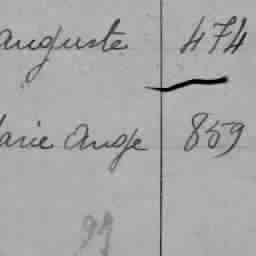 auguste 474
arie Ange 859
99